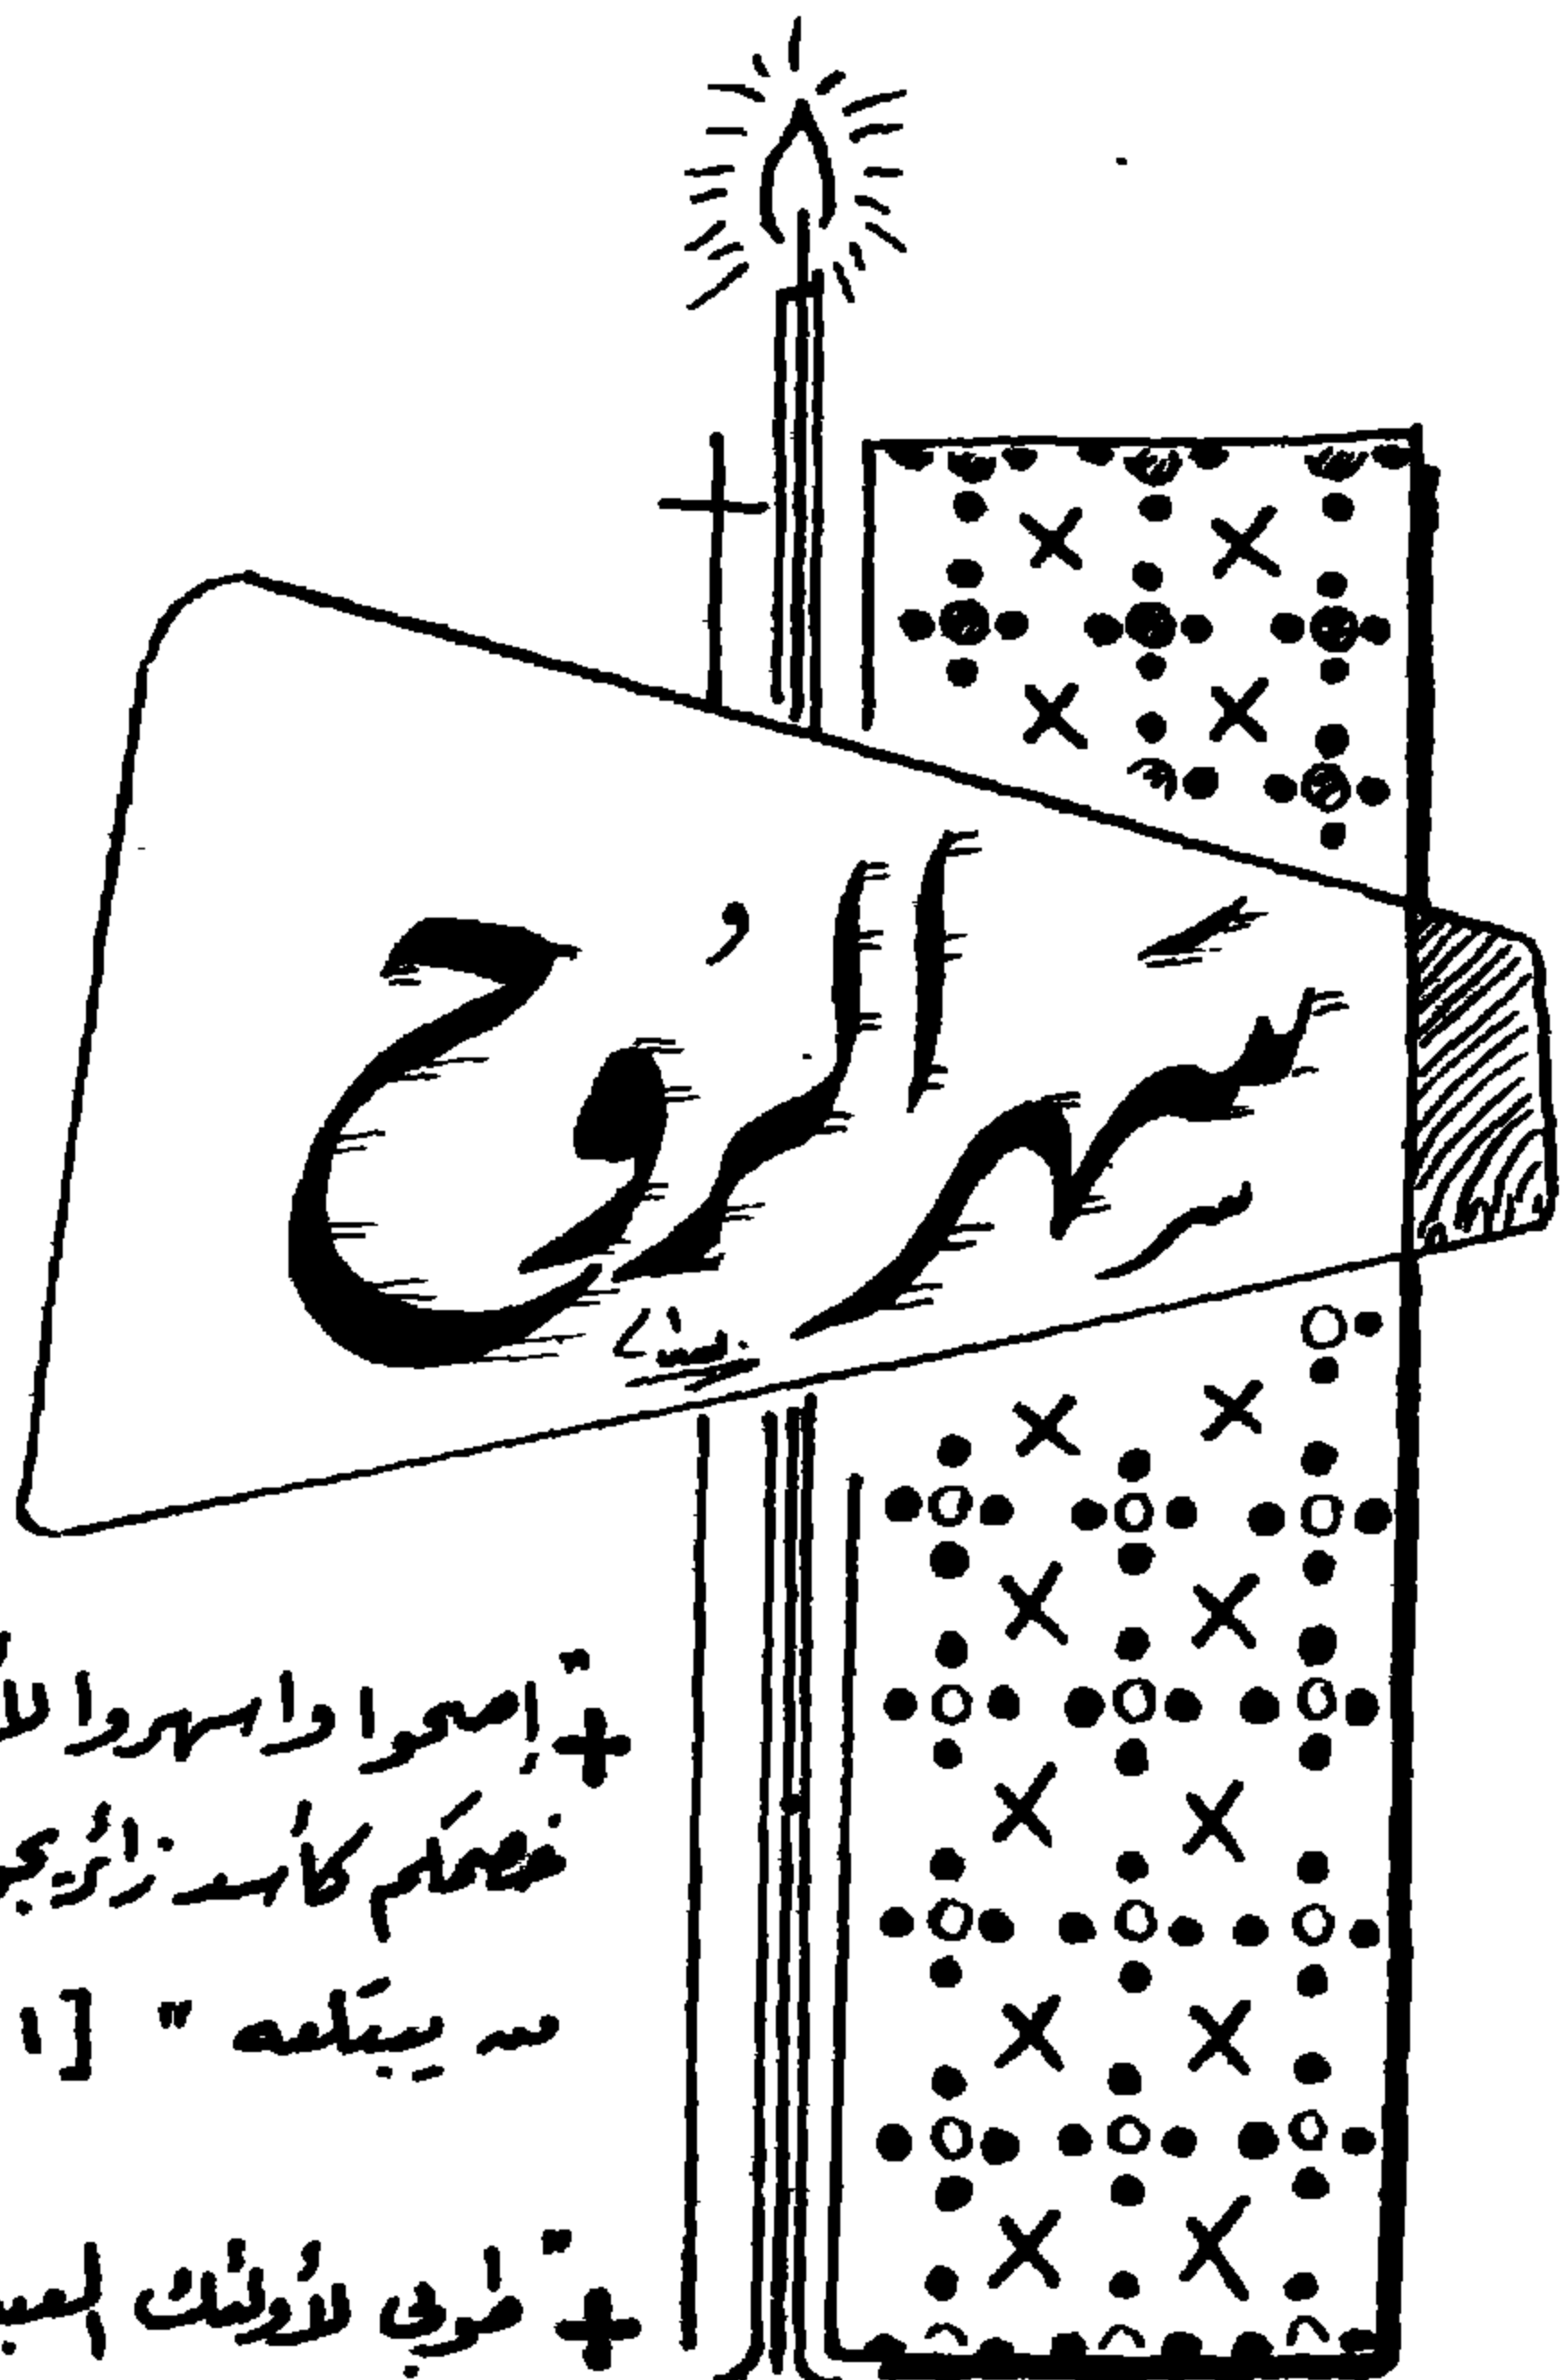 سهر الروح
+ "إصحوا واسهروا
خصمكم كأسد زائر
من يبتلعه" [١
+ "طوبى لأولئك